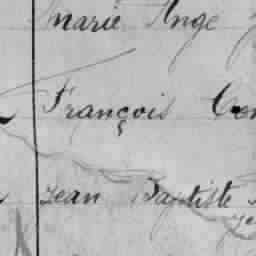 Marie Ange
François
Jean Baptiste